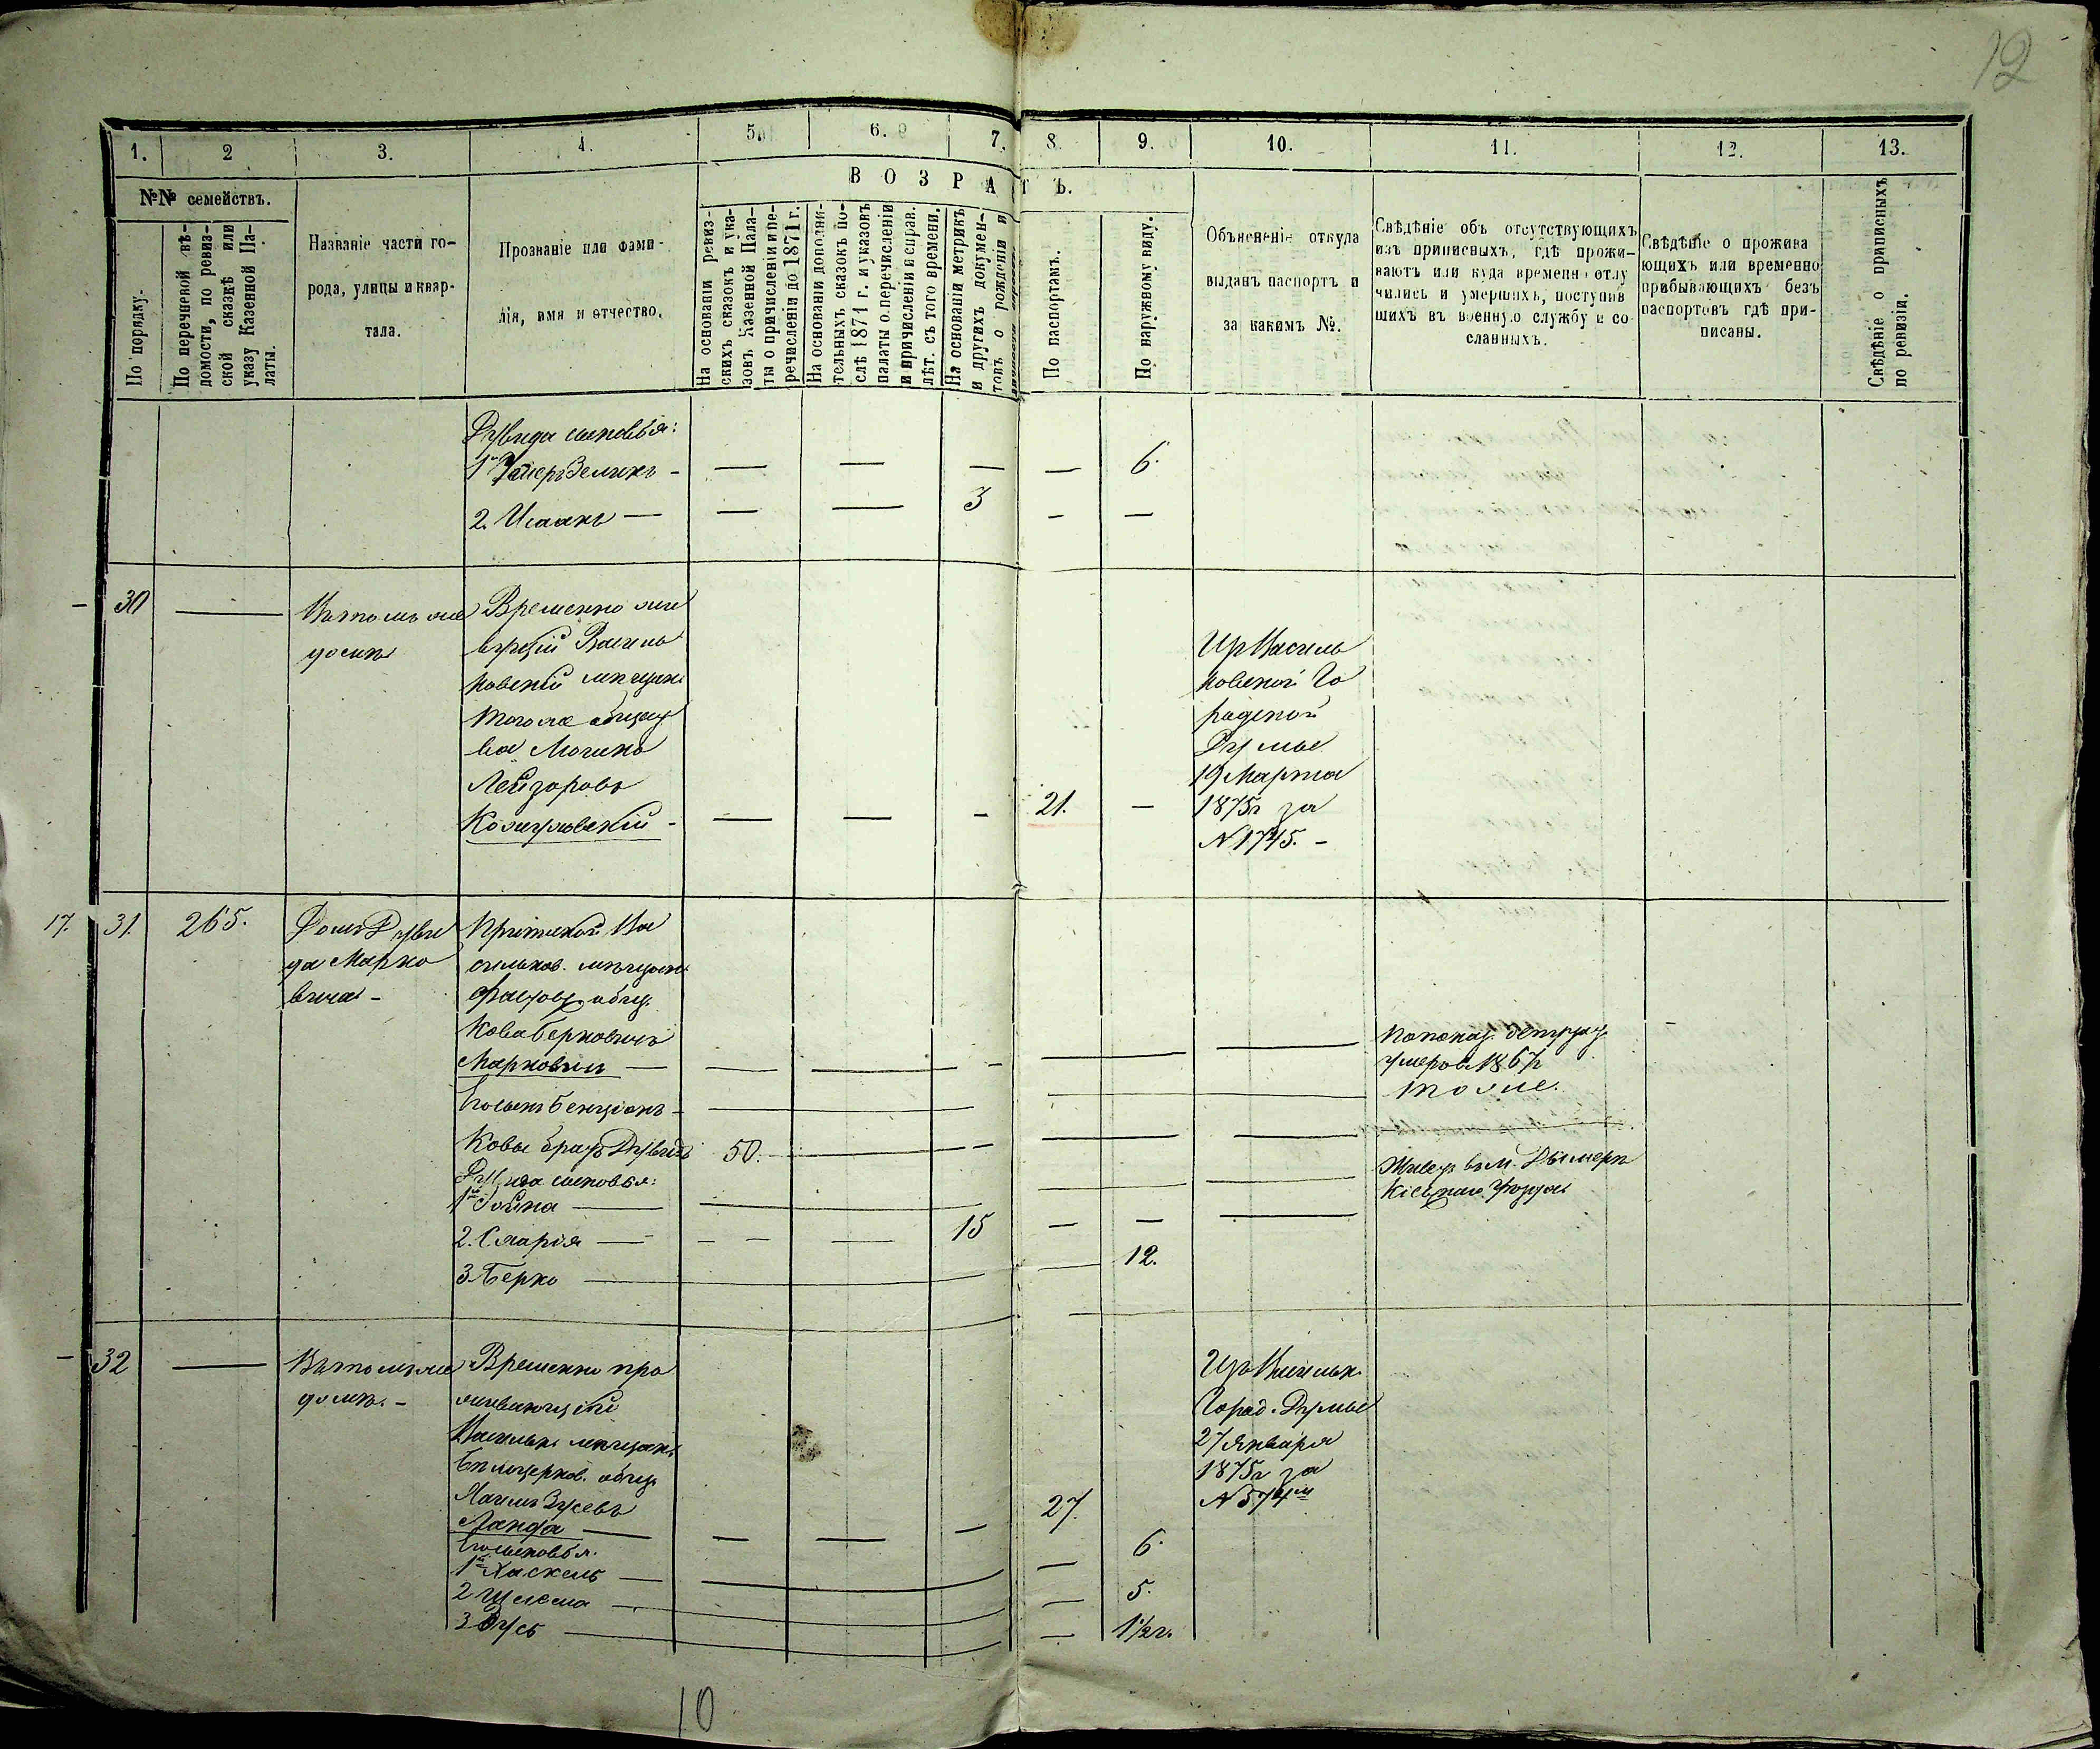 12
1.
2
3.
4.
5.
6.
7.
8.
9.
10.
11.
12.
13.
№№ семействъ.
По порядку.
По перечневой вѣ-
домости, по ревиз-
ской сказкѣ или
указу Казенной Па-
латы.
Названіе части го-
рода, улицы и квар-
тала.
Прозваніе или фами-
лія, имя и отчество.
ВОЗРАСТЪ.
На основаніи ревиз-
скихъ сказокъ и ука-
зовъ Казенной Пала-
ты о причисленіи и пе-
речисленіи до 1871 г.
На основаніи дополни-
тельныхъ сказокъ по-
слѣ 1871 г. и указовъ
палаты о перечисленіи
и причисленіи и справ.
лѣт. съ того времени.
На основаніи метрикъ
и другихъ докумен-
товъ о рожденіи и
По паспортамъ.
По наружному виду.
Объясненіе откуда
выданъ паспортъ и
за какимъ №.
Свѣдѣніе объ отсутствующихъ
изъ приписныхъ, гдѣ прожи-
ваютъ или куда временно отлу
чились и умершихъ, поступив
шихъ въ военную службу и со
сланныхъ.
Свѣдѣніе о прожива
ющихъ или временно
прибывающихъ безъ
паспортовъ гдѣ при-
писаны.
Свѣдѣніе о приписныхъ
по ревизіи.
Дувида сыновья:
1й Меер Зеликъ — — — — 6.
2. Исаакъ — — — 3 — —
— 30 — Въ томъ же
домѣ
Временно жи
вущій Василь
ковскій мѣщан.
того же общест
ва Мошко
Лейзоровъ
— — — 21. —
Изъ Василь
ковской Го
родской
Думы
19 Марта
1875г за
N 1745. –
17. 31. 265. Домъ Дуви
да Марко
вича –
Приписной Ва
сильков. мѣщан.
Фастов. общ.
Кова Берковичъ
Марковичъ — — — –
умеръ въ 1867г
Его сынъ Бенціонъ — тоже.
Ковы братъ Дувидъ 50. — –
Дувида сыновья:
1й Іойна —
Живетъ въ м. Дымерѣ
Кіевскаго Уѣзда
2. Смарія — — — — 15 — —
3. Берко — 12.
— 32 — Въ томъ же
домѣ. –
Временно про
живающій
Васильк. мѣщан.
Бѣлоцерков. общ.
Зусевъ
Ланда — — — — 27.
Изъ Васильк.
Город. Думы
27 Января
1875г за
N 574м
Его сыновья.
1й Хаскель — — 6.
2 — 5.
3 Зусь — 1½ г.
10